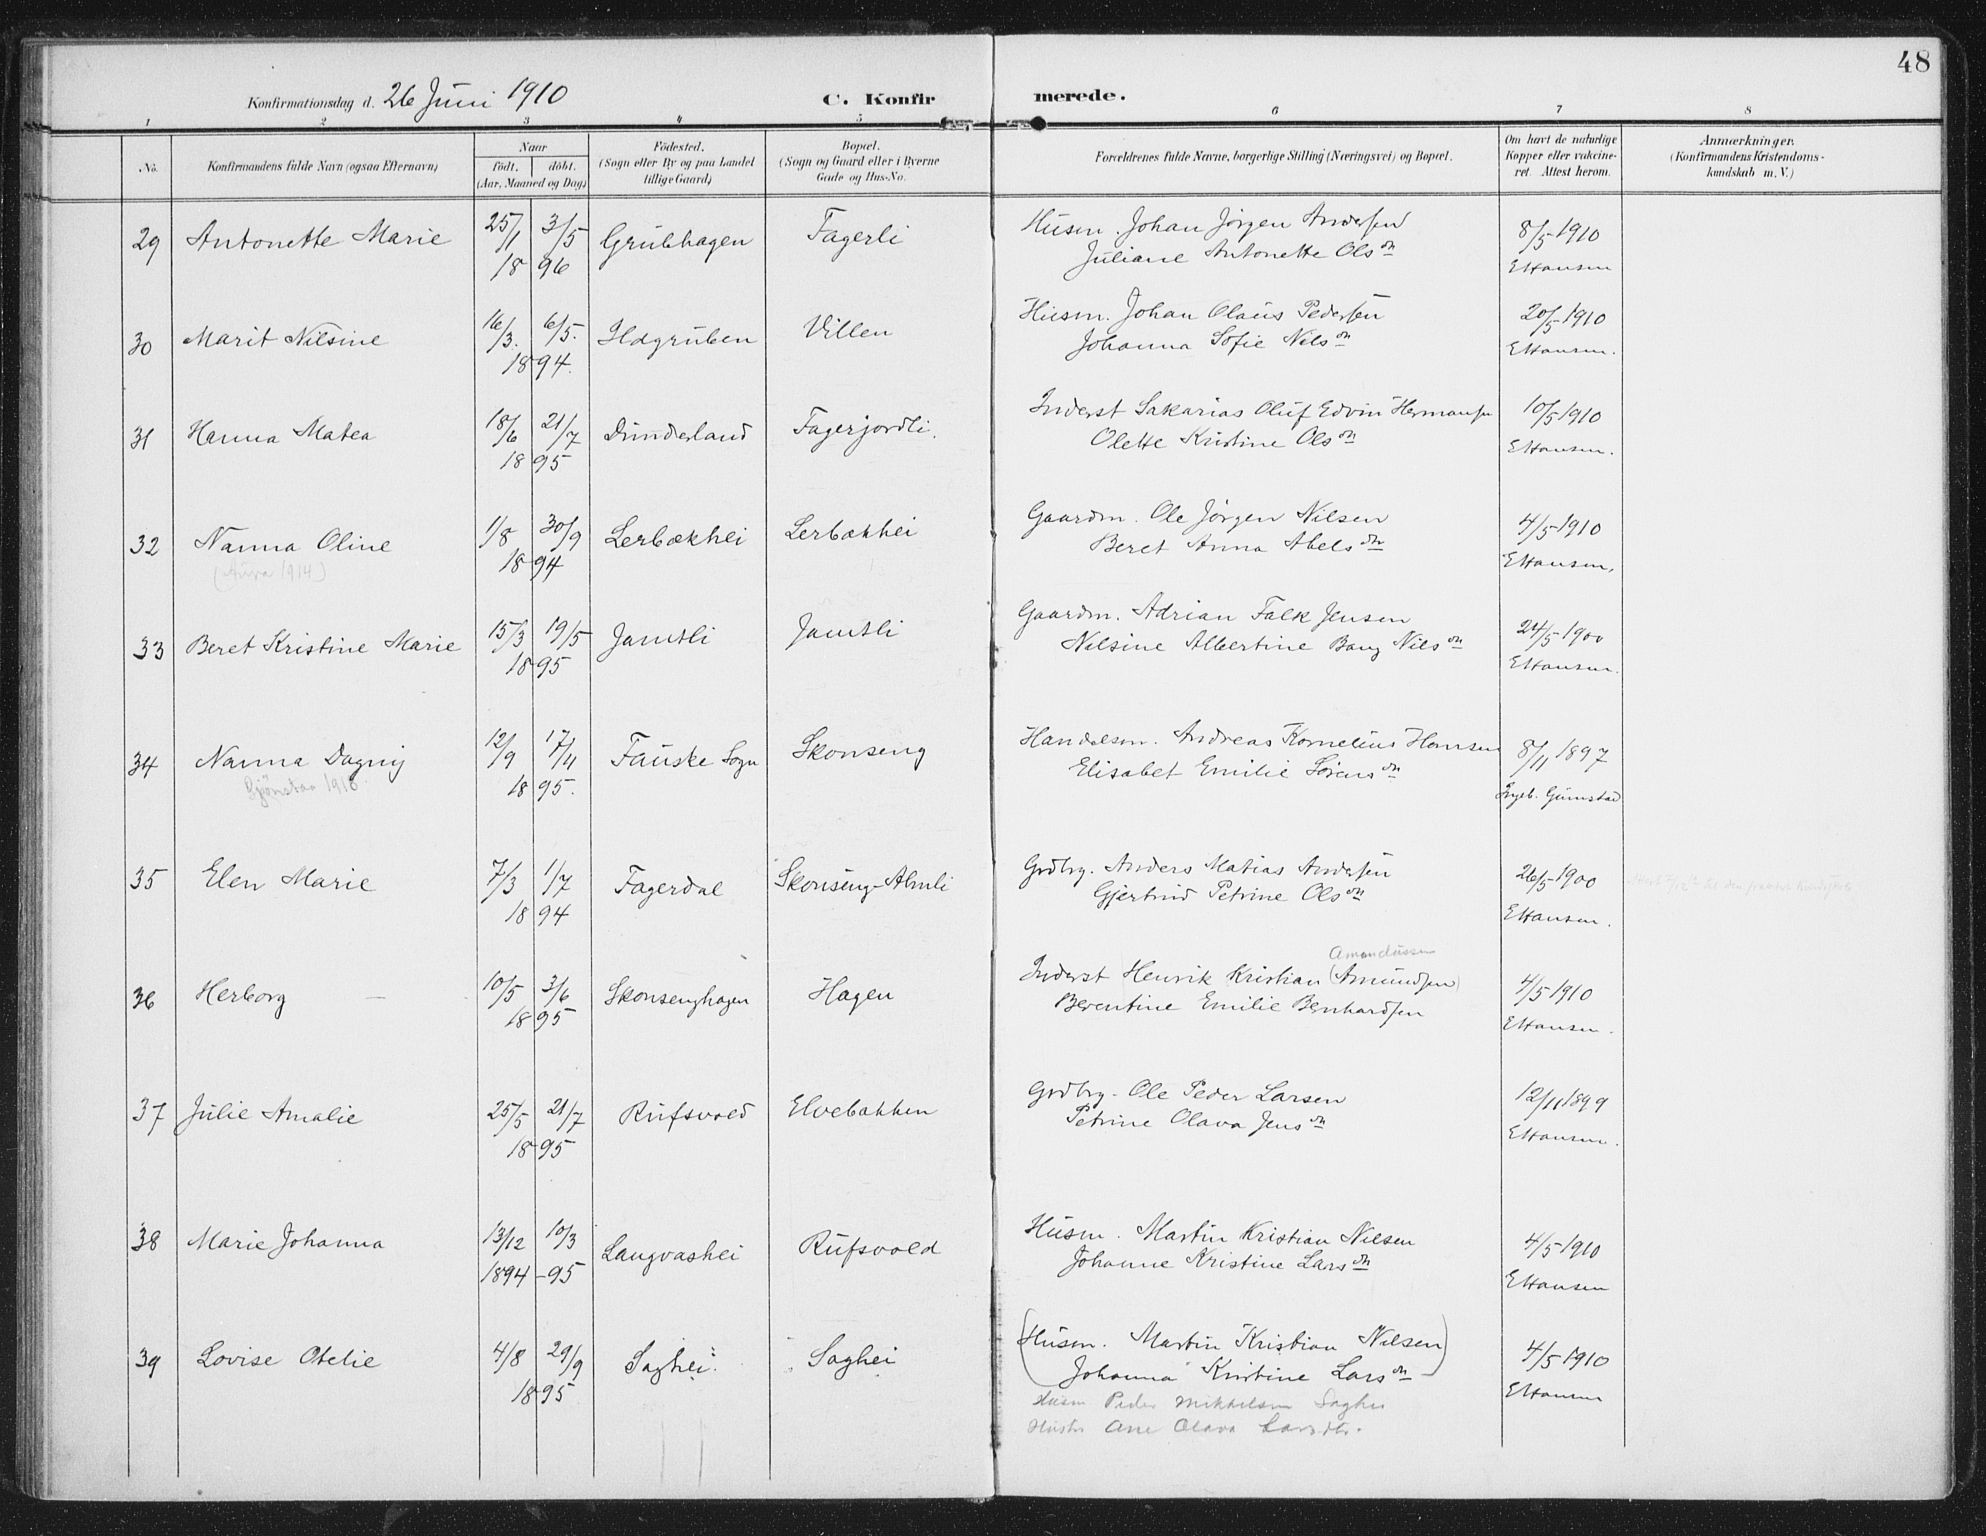 48
Konfirmationsdag d. 26 Juni 1910
C. Konfirmerede.
1 2 3 4 5 6 7 8
No.
Konfirmandens fulde Navn (ogsaa Efternavn)
Naar
født. døbt.
(Aar, Maaned og Dag)
Fødested.
(Sogn eller By og paa Landet
tillige Gaard)
Bopæl.
(Sogn og Gaard eller i Byerne
Gade og Hus-No.
Forældrenes fulde Navne, borgerlige Stilling (Næringsvei) og Bopæl.
Om havt de naturlige
Kopper eller vakcine-
ret. Attest herom.
Anmærkninger.
(Konfirmandens Kristendoms-
kundskab m. V.)
29 Antonette Marie 25/1 3/5 1896 Grubhagen Fagerli Husm. Johan Jørgen Andersen 8/5 1910
Juliane Antonette Olsdn EHansen
30 Marit Nilsine 16/3. 6/5. 1894. Ildgruben Villen Husm. Johan Olaus Pedersen 20/5 1910
Johanna Sofie Nilsdn EHansen.
31 Hanna Matea 18/6 21/7 1895 Dunderland Fagerjordli. Inderst Sakarias Oluf Edvin Hermansen 10/5 1910
Olette Kristine Olsdn EHansen.
32 Nanna Oline 1/8 30/9 1894 Lerbækhei Lerbækhei Gaardm. Ole Jørgen Nilsen 4/5 1910
(1914) Beret Anna Abelsdn EHansen.
33 Beret Kristine Marie 15/3 19/5 1895 Jamtli Jamtli Gaardm. Adrian Falk Jensen 24/5 1900
Nilsine Albertine Bang Nilsdn EHansen.
34 Nanna Dagny 12/9 17/11 1895. Fauske Sogn Skonseng Handelsm. Andreas Kornelius Hansen 8/11 1897
1918. Elisabet Emilie Sørensdn Ingeb. Gumstad
35 Elen Marie 7/3 1/7 1894 Fagerdal Skonseng-Almli Grdbrg. Anders Matias Andersen 26/5 1900
Gjertrud Petrine Olsdn EHansen.
Amandussen
36 Herborg – 10/5 3/6 1895 Skonsenghagen Hagen Inderst Henrik Kristian (Amundsen) 4/5 1910
Berentine Emilie Bernhardsen EHansen.
37 Julie Amalie 25/5 21/7 1895 Rufsvold Elvebakken Grdbrg. Ole Peder Larsen 12/11 1899
Petrine Olava Jensdn EHansen.
38 Marie Johanna 13/12 10/3 1894-95 Langvashei Rufsvold Husm. Martin Kristian Nilsen 4/5 1910
Johanne Kristine Larsdn EHansen
39 Lovise Otelie 4/8 29/9 1895 Saghei Saghei (Husm. Martin Kristian Nilsen 4/5 1910
Johanna Kristine Larsdn) EHansen
Husm Peder Mikkelsen Saghei
Hustr Ane Olava Larsdtr.